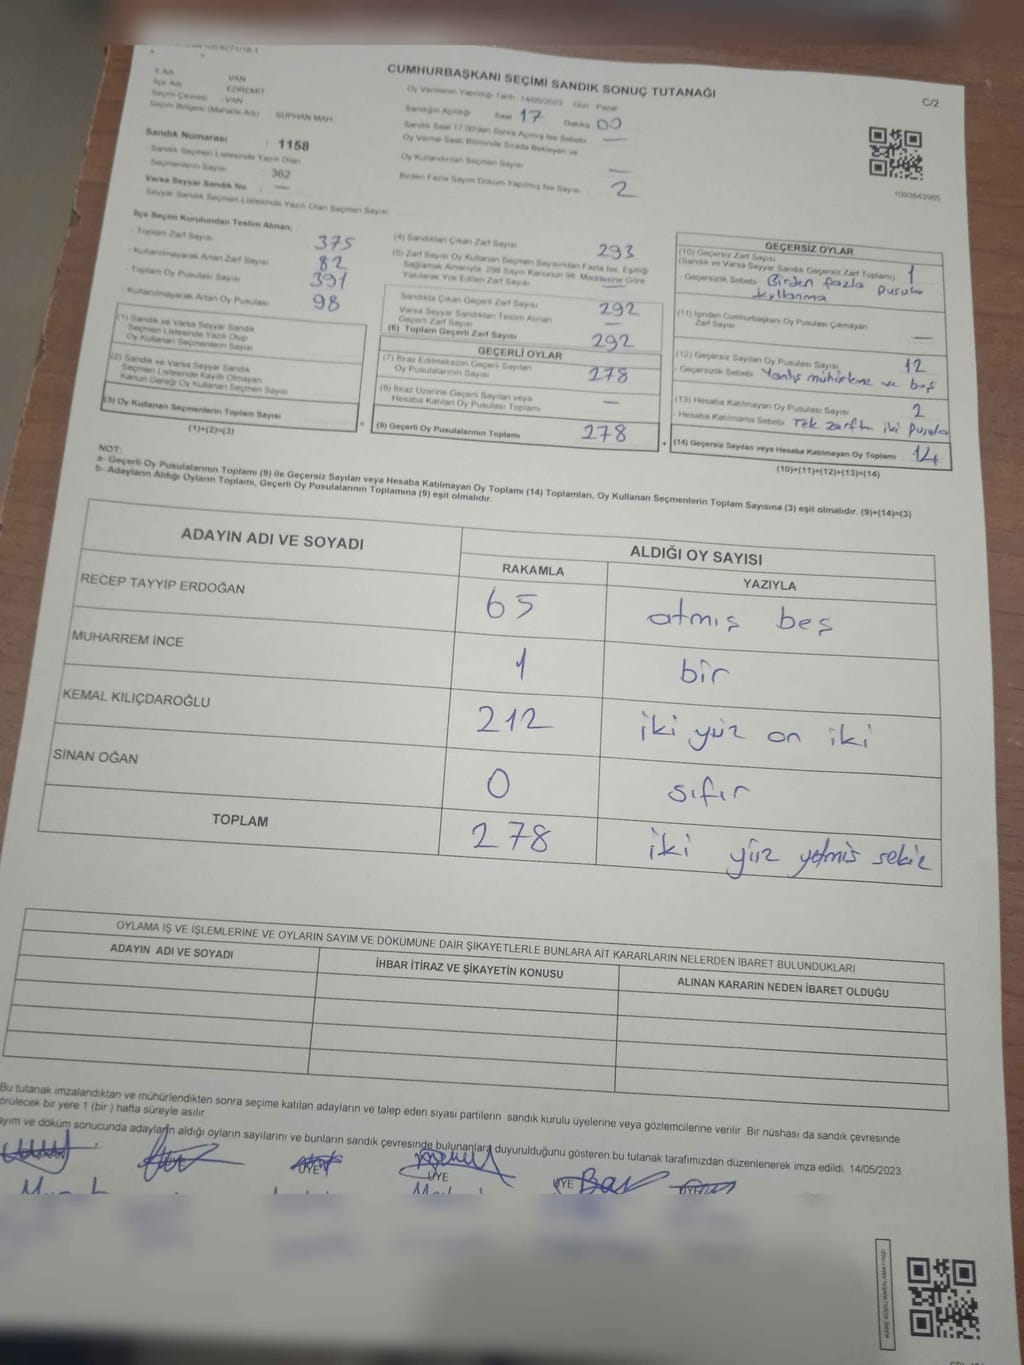 CUMHURBAŞKANI SEÇİMİ SANDIK SONUÇ TUTANAĞI
C/2
İl Adı VAN
İlçe Adı EDREMİT
Seçim Çevresi : VAN
Seçim Bölgesi (Mahalle Adı) SUPHAN MAH.
Sandık Numarası : 1158
Sandık Seçmen Listesinde Yazılı Olan
Seçmenlerin Sayısı : 362
Varsa Seyyar Sandık No : —
Seyyar Sandık Seçmen Listesinde Yazılı Olan Seçmen Sayısı
Oy Vermenin Yapıldığı Tarih : 14/05/2023 Gün Pazar
Sandığın Açıldığı Saat 17 Dakika 00
Sandık Saat 17.00'den Sonra Açılmış İse Sebebi —
Oy Verme Saati Bitiminde Sırada Bekleyen ve
Oy Kullandırılan Seçmen Sayısı —
Birden Fazla Sayım Döküm Yapılmış İse Sayısı 2
1093643985
İlçe Seçim Kurulundan Teslim Alınan;
Toplam Zarf Sayısı 375
Kullanılmayarak Artan Zarf Sayısı 82
Toplam Oy Pusulası Sayısı 391
Kullanılmayarak Artan Oy Pusulası 98
(1) Sandık ve Varsa Seyyar Sandık
Seçmen Listesinde Yazılı Olup
Oy Kullanan Seçmenlerin Sayısı
(2) Sandık ve Varsa Seyyar Sandık
Seçmen Listesinde Kayıtlı Olmayan
Kanun Gereği Oy Kullanan Seçmen Sayısı
(3) Oy Kullanan Seçmenlerin Toplam Sayısı
(1)+(2)=(3)
(4) Sandıktan Çıkan Zarf Sayısı 293
(5) Zarf Sayısı Oy Kullanan Seçmen Sayısından Fazla İse, Eşitliği
Sağlamak Amacıyla, 298 Sayılı Kanunun 98. Maddesine Göre
Yakılarak Yok Edilen Zarf Sayısı —
Sandıkta Çıkan Geçerli Zarf Sayısı 292
Varsa Seyyar Sandıktan Teslim Alınan
Geçerli Zarf Sayısı —
(6) Toplam Geçerli Zarf Sayısı 292
GEÇERLİ OYLAR
(7) İtiraz Edilmeksizin Geçerli Sayılan
Oy Pusulalarının Sayısı 278
(8) İtiraz Üzerine Geçerli Sayılan veya
Hesaba Katılan Oy Pusulası Toplamı —
(9) Geçerli Oy Pusulalarının Toplamı 278
GEÇERSİZ OYLAR
(10) Geçersiz Zarf Sayısı
(Sandık ve Varsa Seyyar Sandık Geçersiz Zarf Toplamı) 1
- Geçersizlik Sebebi Birden fazla pusula
kullanma
(11) İçinden Cumhurbaşkanı Oy Pusulası Çıkmayan
Zarf Sayısı —
(12) Geçersiz Sayılan Oy Pusulası Sayısı 12
- Geçersizlik Sebebi Yanlış mühürleme ve boş
(13) Hesaba Katılmayan Oy Pusulası Sayısı 2
- Hesaba Katılmama Sebebi Tek zarftan iki pusula
(14) Geçersiz Sayılan veya Hesaba Katılmayan Oy Toplamı 14
(10)+(11)+(12)+(13)=(14)
NOT:
a- Geçerli Oy Pusulalarının Toplamı (9) ile Geçersiz Sayılan veya Hesaba Katılmayan Oy Toplamı (14) Toplamları, Oy Kullanan Seçmenlerin Toplam Sayısına (3) eşit olmalıdır. (9)+(14)=(3)
b- Adayların Aldığı Oyların Toplamı, Geçerli Oy Pusulalarının Toplamına (9) eşit olmalıdır.
ADAYIN ADI VE SOYADI
ALDIĞI OY SAYISI
RAKAMLA YAZIYLA
RECEP TAYYİP ERDOĞAN 65 atmış beş
MUHARREM İNCE 1 bir
KEMAL KILIÇDAROĞLU 212 iki yüz on iki
SİNAN OĞAN 0 sıfır
TOPLAM 278 iki yüz yetmiş sekiz
OYLAMA İŞ VE İŞLEMLERİNE VE OYLARIN SAYIM VE DÖKÜMÜNE DAİR ŞİKAYETLERLE BUNLARA AİT KARARLARIN NELERDEN İBARET BULUNDUKLARI
ADAYIN ADI VE SOYADI İHBAR İTİRAZ VE ŞİKAYETİN KONUSU ALINAN KARARIN NEDEN İBARET OLDUĞU
Bu tutanak imzalandıktan ve mühürlendikten sonra seçime katılan adayların ve talep eden siyasi partilerin sandık kurulu üyelerine veya gözlemcilerine verilir. Bir nüshası da sandık çevresinde
görülecek bir yere 1 (bir ) hafta süreyle asılır.
ayım ve döküm sonucunda adayların aldığı oyların sayılarını ve bunların sandık çevresinde bulunanlara duyurulduğunu gösteren bu tutanak tarafımızdan düzenlenerek imza edildi. 14/05/2023
ÜYE ÜYE ÜYE ÜYE ÜYE
KARE KODU KARALAMAYINIZ!